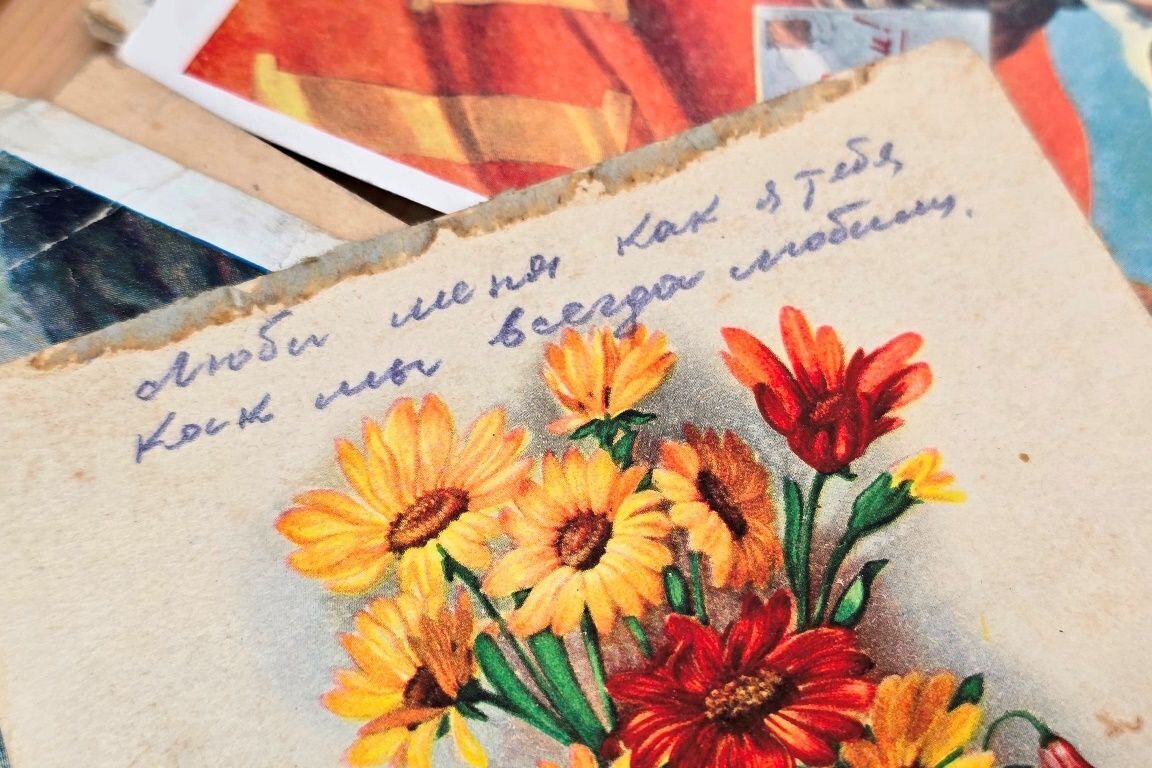 Люби меня как я тебя
Как мы всегда